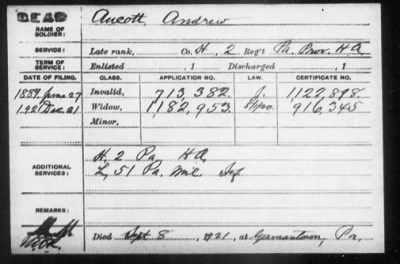 DEAD
NAME OF SOLDIER: Aucott, Andrew
SERVICE: Late rank, Co. H, 2 Reg't Pa. Prov. H A,
TERM OF SERVICE: Enlisted , 1 Discharged , 1
DATE OF FILING. CLASS. APPLICATION NO. LAW. CERTIFICATE NO.
June 27 Invalid, 713,382 J. 1,122,898
1921 Dec. 21 Widow, 1,182,953 916,345
Minor,
ADDITIONAL SERVICES:
H, 2 Pa H A,
L, 51 Pa. Mil Inf
REMARKS:
Died Sept 8, 1921, at Germantown, Pa.